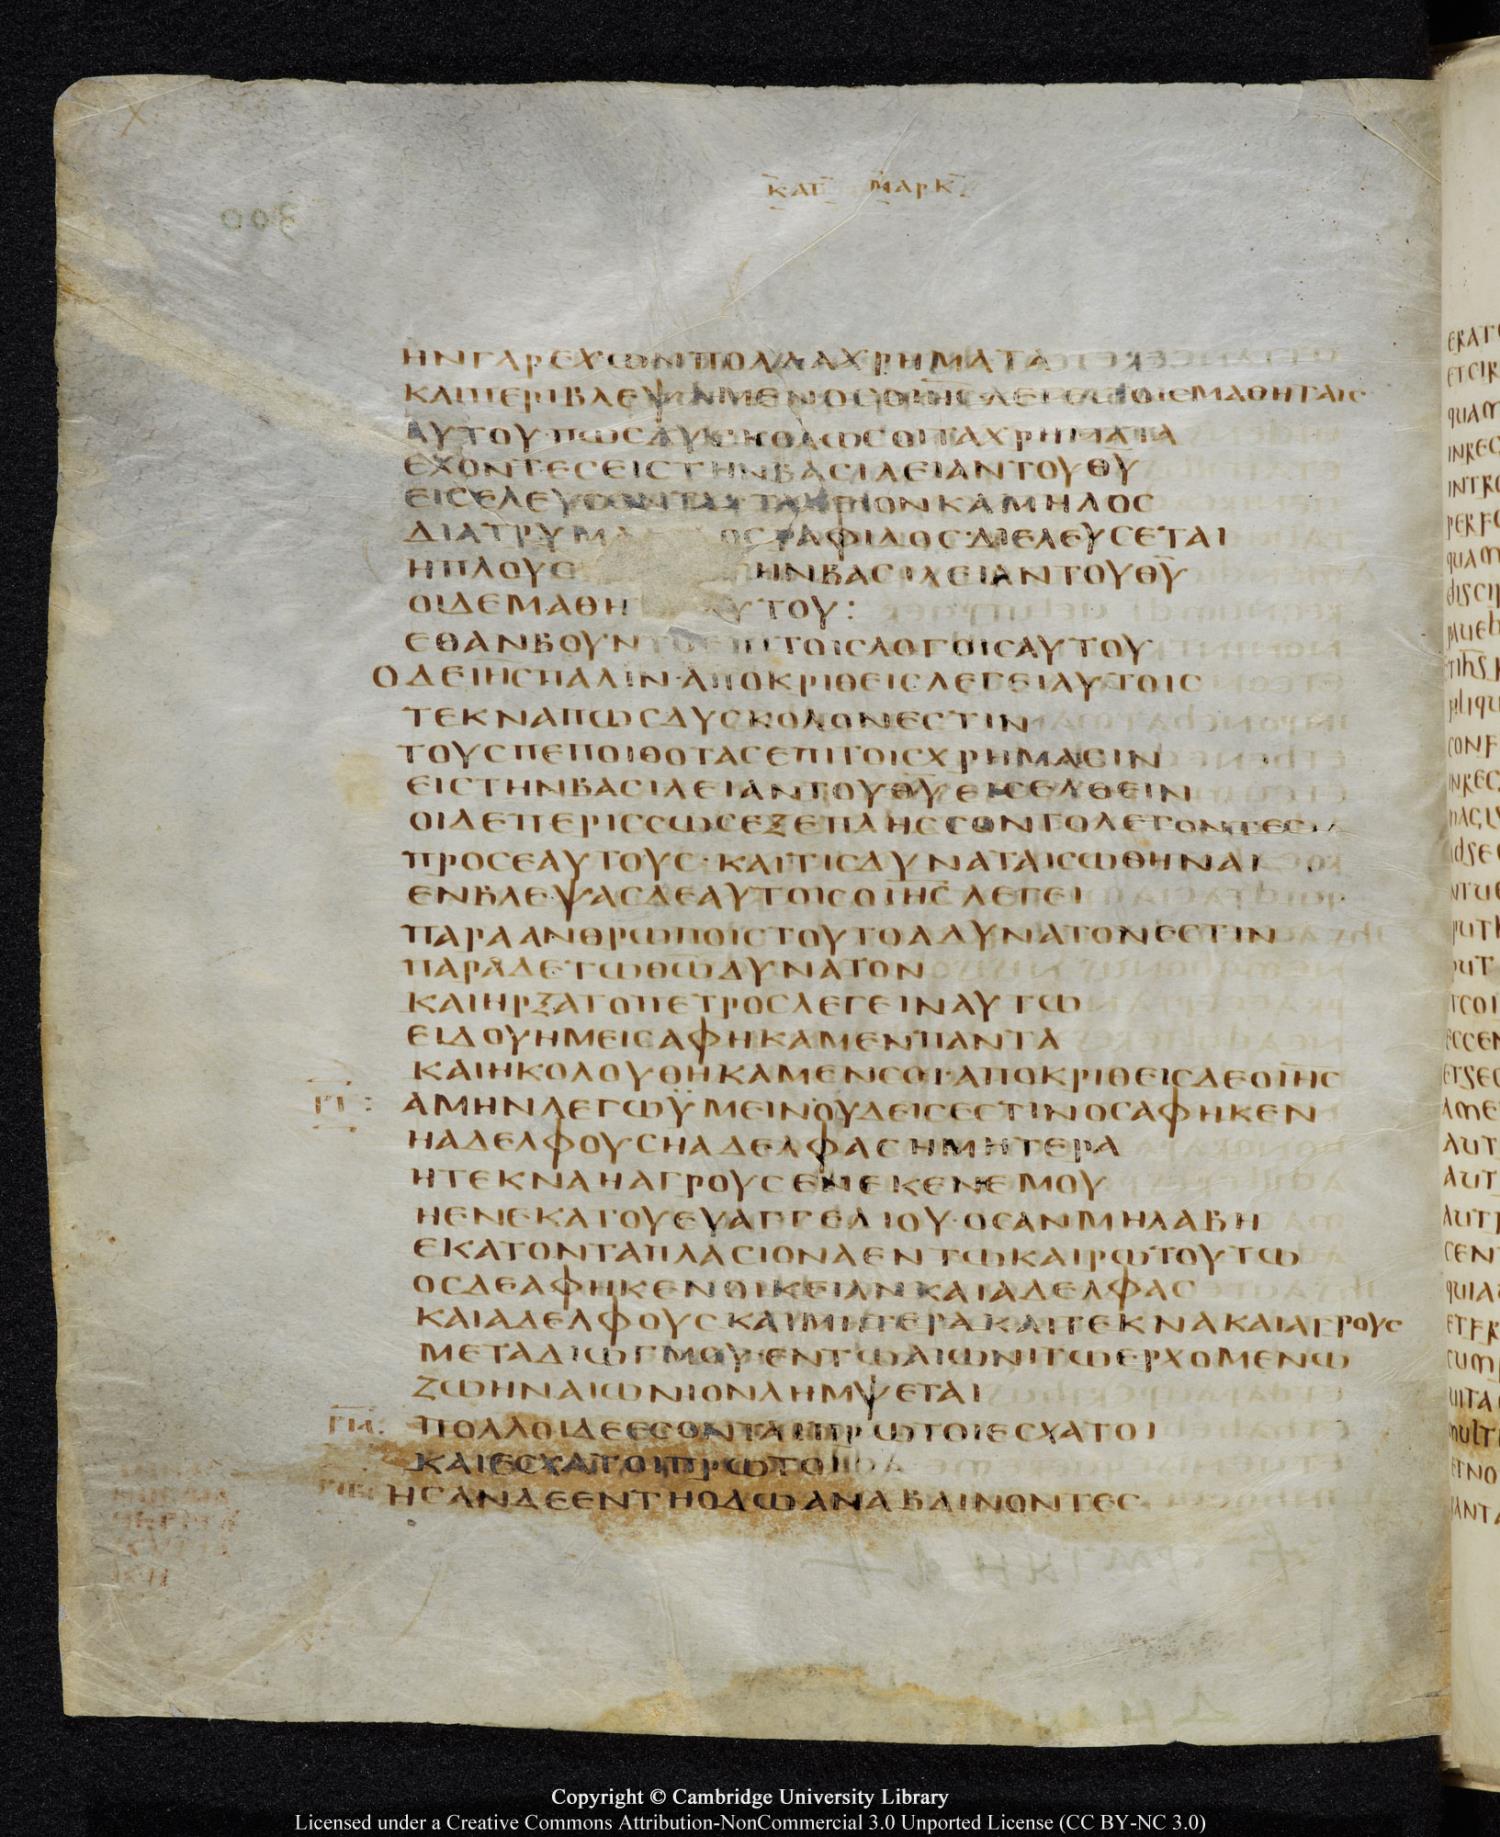 ΚΑΤ ΜΑΡΚ
ΗΝΓΑΡΕΧΩΝΠΟΛΛΑΧΡΗΜΑΤΑ
ΚΑΙΠΕΡΙΒΛΕΨΑΜΕΝΟΣΟΙΗΣ·ΛΕΓΕΙΤΟΙΣΜΑΘΗΤΑΙΣ
ΑΥΤΟΥ·ΠΩΣΔΥΣΚΟΛΩΣΟΙΤΑΧΡΗΜΑΤΑ
ΕΧΟΝΤΕΣΕΙΣΤΗΝΒΑΣΙΛΕΙΑΝΤΟΥΘΥ
ΕΙΣΕΛΕΥΣΟΝΤΑΙ·ΤΑΧΙΟΝΚΑΜΗΛΟΣ
ΔΙΑΤΡΥΜΑ ΟΣΡΑΦΙΔΟΣ·ΔΙΕΛΕΥΣΕΤΑΙ
ΗΠΛΟΥΣ ΗΝΒΑΣΙΛΕΙΑΝΤΟΥΘΥ
ΟΙΔΕΜΑΘΗ ΥΤΟΥ:
ΕΘΑΝΒΟΥΝΤΟΕΠΙΤΟΙΣΛΟΓΟΙΣΑΥΤΟΥ
ΟΔΕΙΗΣΠΑΛΙΝ·ΑΠΟΚΡΙΘΕΙΣΛΕΓΕΙΑΥΤΟΙΣ
ΤΕΚΝΑΠΩΣΔΥΣΚΟΛΟΝΕΣΤΙΝ
ΤΟΥΣΠΕΠΟΙΘΟΤΑΣΕΠΙΤΟΙΣΧΡΗΜΑΣΙΝ
ΕΙΣΤΗΝΒΑΣΙΛΕΙΑΝΤΟΥΘΥΕΙΣΕΛΘΕΙΝ
ΟΙΔΕΠΕΡΙΣΣΩΣΕΞΕΠΛΗΣΣΟΝΤΟΛΕΓΟΝΤΕΣ
ΠΡΟΣΕΑΥΤΟΥΣ·ΚΑΙΤΙΣΔΥΝΑΤΑΙΣΩΘΗΝΑΙ
ΕΝΒΛΕΨΑΣΔΕΑΥΤΟΙΣΟΙΗΣΛΕΓΕΙ
ΠΑΡΑΑΝΘΡΩΠΟΙΣΤΟΥΤΟΑΔΥΝΑΤΟΝΕΣΤΙΝ
ΠΑΡΑΔΕΤΩΘΩΔΥΝΑΤΟΝ
ΚΑΙΗΡΞΑΤΟΠΕΤΡΟΣΛΕΓΕΙΝΑΥΤΩ
ΕΙΔΟΥΗΜΕΙΣΑΦΗΚΑΜΕΝΠΑΝΤΑ
ΚΑΙΗΚΟΛΟΥΘΗΚΑΜΕΝΣΟΙ·ΑΠΟΚΡΙΘΕΙΣΔΕΟΙΗΣ
ΑΜΗΝΛΕΓΩΫΜΕΙΝΟΥΔΕΙΣΕΣΤΙΝΟΣΑΦΗΚΕΝ
ΗΑΔΕΛΦΟΥΣΗΑΔΕΛΦΑΣΗΜΗΤΕΡΑ
ΗΤΕΚΝΑΗΑΓΡΟΥΣΕΝΕΚΕΝΕΜΟΥ
ΗΕΝΕΚΑΤΟΥΕΥΑΓΓΕΛΙΟΥ·ΟΣΑΝΜΗΛΑΒΗ
ΕΚΑΤΟΝΤΑΠΛΑΣΙΟΝΑΕΝΤΩΚΑΙΡΩΤΟΥΤΩ
ΟΣΔΕΑΦΗΚΕΝΟΙΚΕΙΑΝΚΑΙΑΔΕΛΦΑΣ
ΚΑΙΑΔΕΛΦΟΥΣΚΑΙΜΗΤΕΡΑΚΑΙΤΕΚΝΑΚΑΙΑΓΡΟΥΣ
ΜΕΤΑΔΙΩΓΜΟΥ·ΕΝΤΩΑΙΩΝΙΤΩΕΡΧΟΜΕΝΩ
ΖΩΗΝΑΙΩΝΙΟΝΛΗΜΨΕΤΑΙ
ΠΟΛΛΟΙΔΕΕΣΟΝΤΑΙΠΡΩΤΟΙΕΣΧΑΤΟΙ
ΚΑΙΕΣΧΑΤΟΙΠΡΩΤΟΙ
ΗΣΑΝΔΕΕΝΤΗΟΔΩΑΝΑΒΑΙΝΟΝΤΕΣ
Copyright © Cambridge University Library
Licensed under a Creative Commons Attribution-NonCommercial 3.0 Unported License (CC BY-NC 3.0)